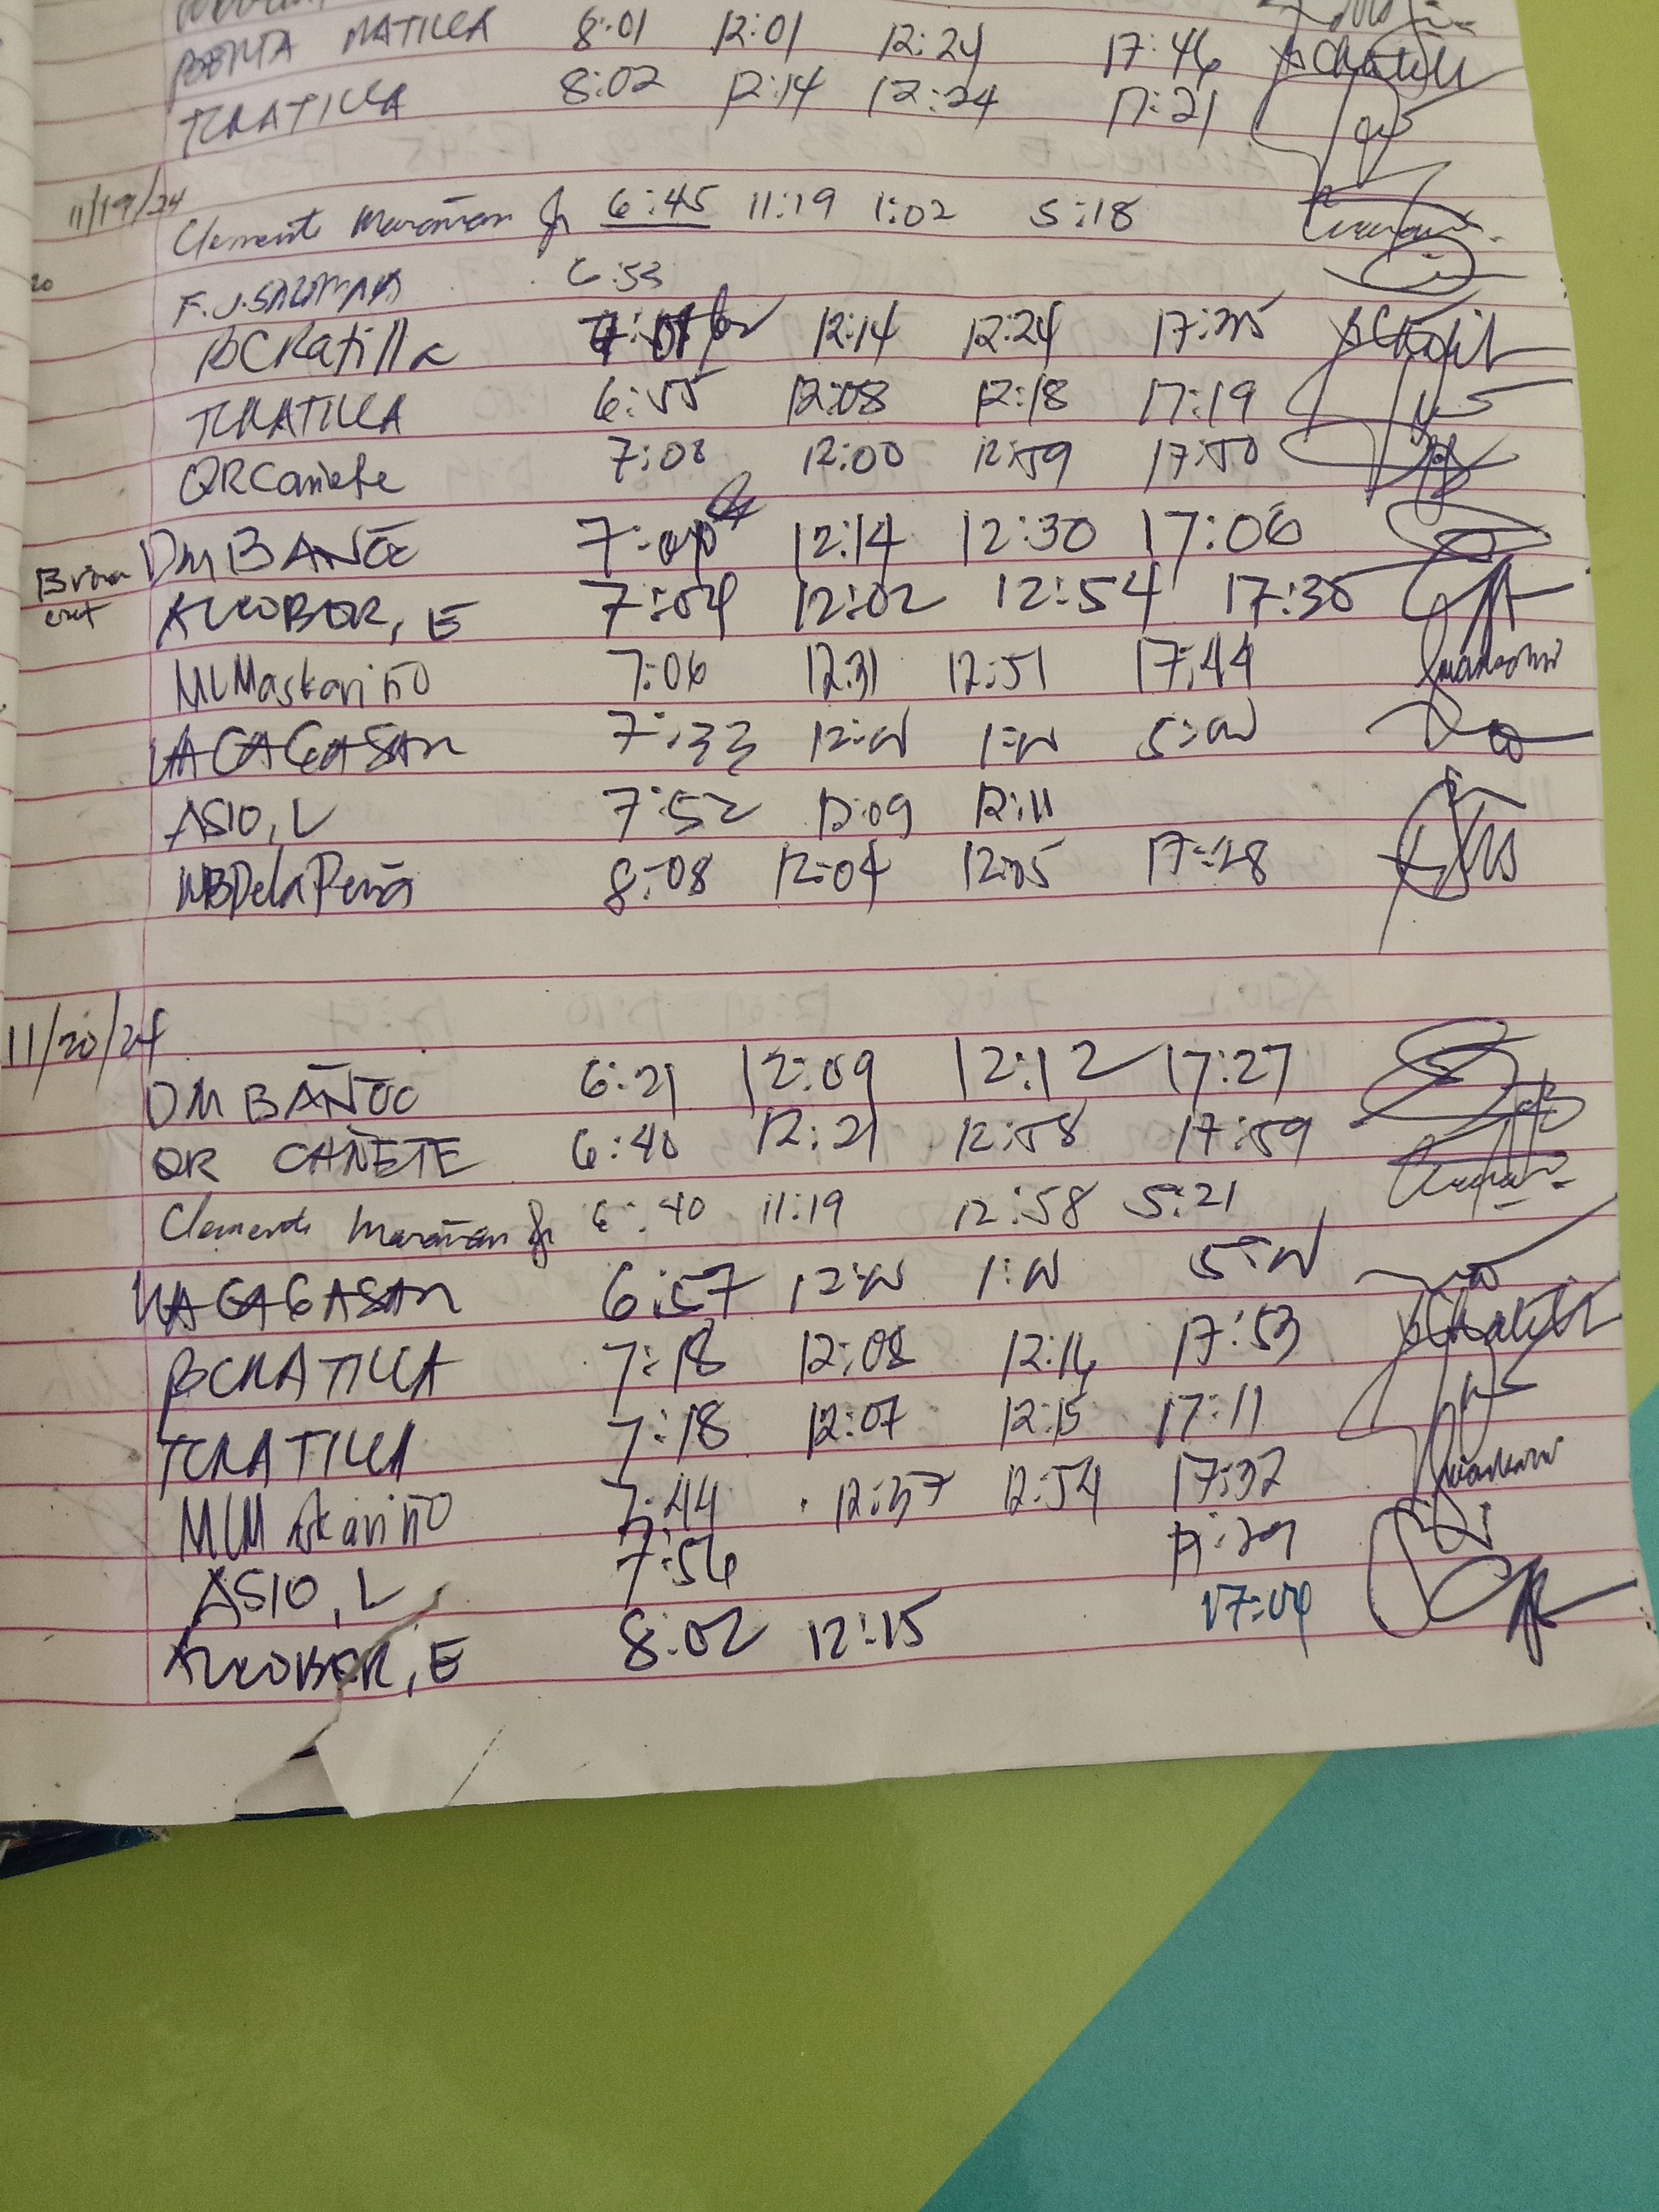 MATILLA 8:01 12:01 12:24 17:46
TCRATILLA 8:02 12:14 12:24 17:21
11/19/24
Clemente Marañan Jr 6:45 11:19 1:02 5:18
20
F.J. 6:53
BCRatilla 12:14 12:24 17:35
TCRATILLA 6:55 12:08 12:18 17:19
QRCañete 7:08 12:00 12:59 17:50
DM BAÑOC 12:14 12:30 17:06
ALCOBER, E 7:04 12:02 12:54 17:30
MLMaskariño 7:06 12:31 12:51 17:44
VACAGASAN 7:33 12:00 1:00 5:00
ASIO, L 7:52 12:09 12:11
NBDelaPeña 8:08 12:04 12:05 17:28
11/20/24
DM BAÑOC 6:21 12:09 12:12 17:27
QR CAÑETE 6:40 12:21 12:58 17:59
Clemente Marañan Jr 6:40 11:19 12:58 5:21
VACAGASAN 6:57 12:00 1:00 5:00
BCRATILLA 7:18 12:08 12:16 17:53
TCRATILLA 7:18 12:07 12:15 17:11
MLMaskariño 7:44 12:37 12:54 17:32
ASIO, L 7:56 17:29
ALCOBER, E 8:02 12:15 17:04